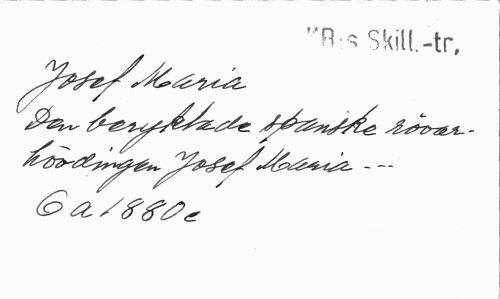 KB:s Skill.-tr.
Josef Maria
Den beryktade spanske rövar-
hövdingen Josef Maria ---
6 a 1880 c